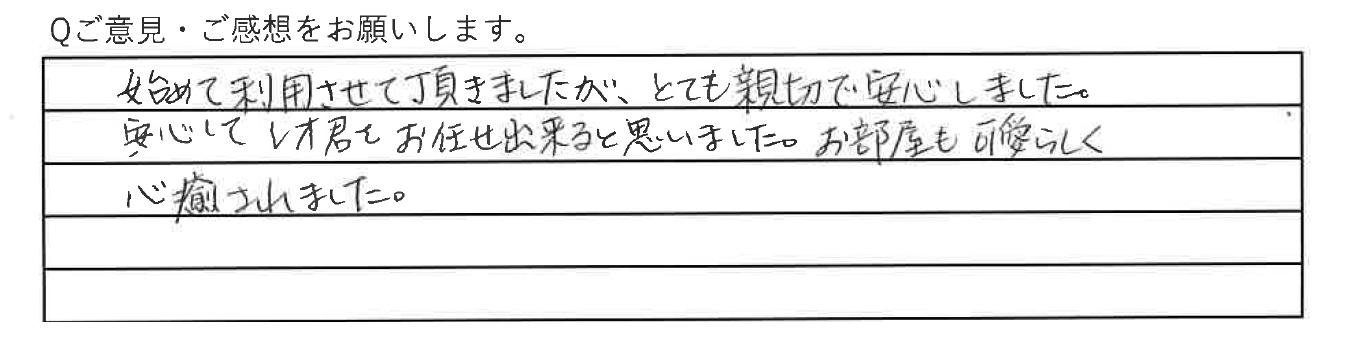 Qご意見・ご感想をお願いします。
始めて利用させて頂きましたが、とても親切で安心しました。
安心して レオ君を お任せ出来ると思いました。お部屋も可愛らしく
心癒されました。